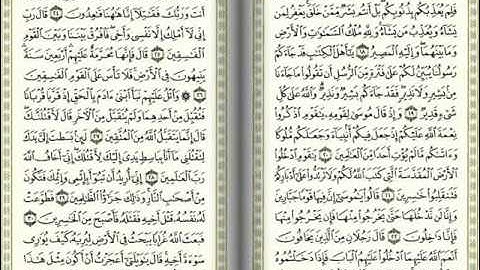 فَلِمَ يُعَذِّبُكُم بِذُنُوبِكُم بَلْ أَنتُم بَشَرٌ مِّمَّنْ خَلَقَ يَغْفِرُ لِمَن
يَشَآءُ وَيُعَذِّبُ مَن يَشَآءُ وَلِلَّهِ مُلْكُ ٱلسَّمَٰوَٰتِ وَٱلْأَرْضِ
وَمَا بَيْنَهُمَا وَإِلَيْهِ ٱلْمَصِيرُ ١٨ يَٰٓأَهْلَ ٱلْكِتَٰبِ قَدْ جَآءَكُمْ
رَسُولُنَا يُبَيِّنُ لَكُمْ عَلَىٰ فَتْرَةٍ مِّنَ ٱلرُّسُلِ أَن تَقُولُوا۟ مَا جَآءَنَا
مِنۢ بَشِيرٍ وَلَا نَذِيرٍ فَقَدْ جَآءَكُم بَشِيرٌ وَنَذِيرٌ وَٱللَّهُ عَلَىٰ كُلِّ
شَىْءٍ قَدِيرٌ ١٩ وَإِذْ قَالَ مُوسَىٰ لِقَوْمِهِۦ يَٰقَوْمِ ٱذْكُرُوا۟
نِعْمَةَ ٱللَّهِ عَلَيْكُمْ إِذْ جَعَلَ فِيكُمْ أَنۢبِيَآءَ وَجَعَلَكُم مُّلُوكًا
وَءَاتَىٰكُم مَّا لَمْ يُؤْتِ أَحَدًا مِّنَ ٱلْعَٰلَمِينَ ٢٠ يَٰقَوْمِ ٱدْخُلُوا۟
ٱلْأَرْضَ ٱلْمُقَدَّسَةَ ٱلَّتِى كَتَبَ ٱللَّهُ لَكُمْ وَلَا تَرْتَدُّوا۟ عَلَىٰٓ أَدْبَارِكُمْ
فَتَنقَلِبُوا۟ خَٰسِرِينَ ٢١ قَالُوا۟ يَٰمُوسَىٰٓ إِنَّ فِيهَا قَوْمًا جَبَّارِينَ
وَإِنَّا لَن نَّدْخُلَهَا حَتَّىٰ يَخْرُجُوا۟ مِنْهَا فَإِن يَخْرُجُوا۟ مِنْهَا
فَإِنَّا دَٰخِلُونَ ٢٢ قَالَ رَجُلَانِ مِنَ ٱلَّذِينَ يَخَافُونَ
أَنْعَمَ ٱللَّهُ عَلَيْهِمَا ٱدْخُلُوا۟ عَلَيْهِمُ ٱلْبَابَ فَإِذَا دَخَلْتُمُوهُ
أَنتَ وَرَبُّكَ فَقَٰتِلَآ إِنَّا هَٰهُنَا قَٰعِدُونَ ٢٤ قَالَ رَبِّ
إِنِّى لَآ أَمْلِكُ إِلَّا نَفْسِى وَأَخِى فَٱفْرُقْ بَيْنَنَا وَبَيْنَ ٱلْقَوْمِ
ٱلْفَٰسِقِينَ ٢٥ قَالَ فَإِنَّهَا مُحَرَّمَةٌ عَلَيْهِمْ أَرْبَعِينَ سَنَةً
يَتِيهُونَ فِى ٱلْأَرْضِ فَلَا تَأْسَ عَلَى ٱلْقَوْمِ ٱلْفَٰسِقِينَ
٢٦ ۞ وَٱتْلُ عَلَيْهِمْ نَبَأَ ٱبْنَىْ ءَادَمَ بِٱلْحَقِّ إِذْ قَرَّبَا قُرْبَانًا
فَتُقُبِّلَ مِنْ أَحَدِهِمَا وَلَمْ يُتَقَبَّلْ مِنَ ٱلْءَاخَرِ قَالَ لَأَقْتُلَنَّكَ
قَالَ إِنَّمَا يَتَقَبَّلُ ٱللَّهُ مِنَ ٱلْمُتَّقِينَ ٢٧ لَئِنۢ بَسَطتَ إِلَىَّ يَدَكَ
لِتَقْتُلَنِى مَآ أَنَا۠ بِبَاسِطٍ يَدِىَ إِلَيْكَ لِأَقْتُلَكَ إِنِّىٓ أَخَافُ ٱللَّهَ
رَبَّ ٱلْعَٰلَمِينَ ٢٨ إِنِّىٓ أُرِيدُ أَن تَبُوٓأَ بِإِثْمِى وَإِثْمِكَ فَتَكُونَ
مِنْ أَصْحَٰبِ ٱلنَّارِ وَذَٰلِكَ جَزَٰٓؤُا۟ ٱلظَّٰلِمِينَ ٢٩ فَطَوَّعَتْ
لَهُۥ نَفْسُهُۥ قَتْلَ أَخِيهِ فَقَتَلَهُۥ فَأَصْبَحَ مِنَ ٱلْخَٰسِرِينَ ٣٠
فَبَعَثَ ٱللَّهُ غُرَابًا يَبْحَثُ فِى ٱلْأَرْضِ لِيُرِيَهُۥ كَيْفَ يُوَٰرِى
سَوْءَةَ أَخِيهِ قَالَ يَٰوَيْلَتَىٰٓ أَعَجَزْتُ أَنْ أَكُونَ مِثْلَ هَٰذَا